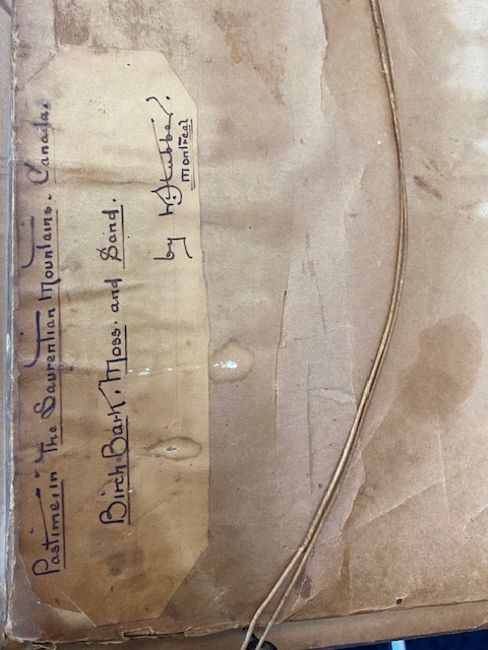 Pastime, in The Laurentian Mountains. Canada.
Birch-Bark, Moss. and Sand.
by
Montreal